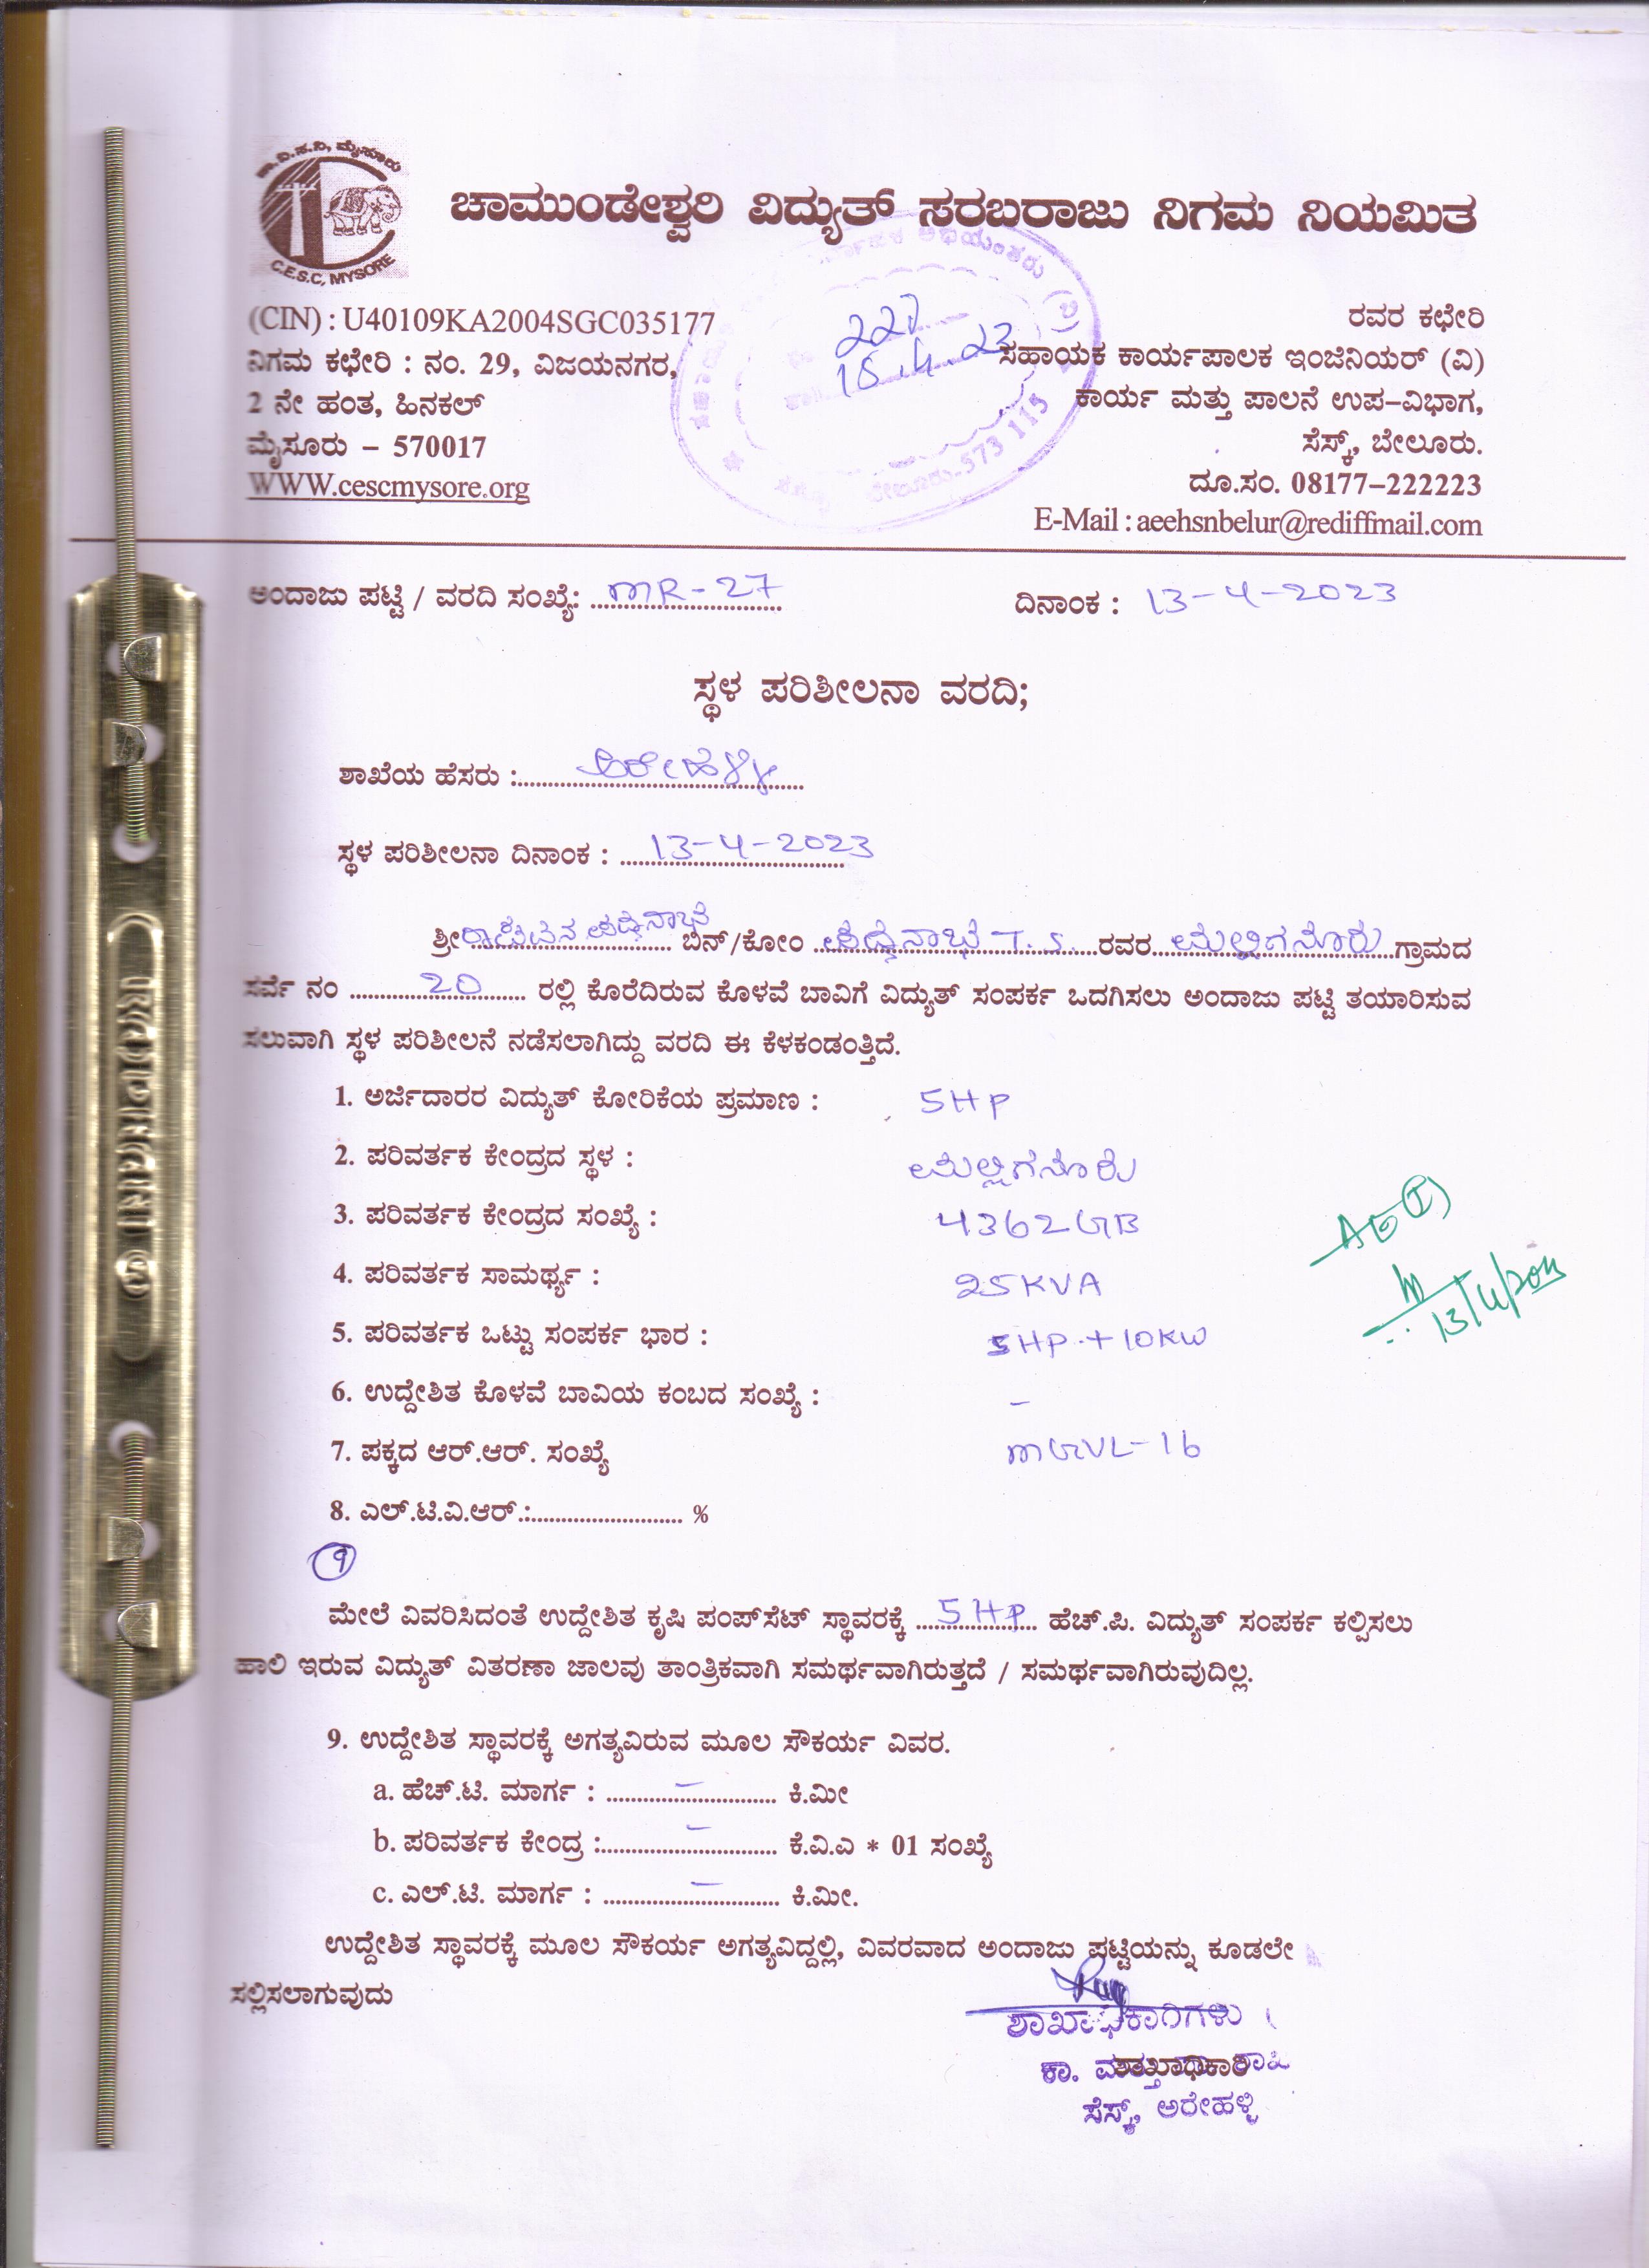 ಚಾ.ವಿ.ಸ.ನಿ, ಮೈಸೂರು
C.E.S.C, MYSORE
ಚಾಮುಂಡೇಶ್ವರಿ ವಿದ್ಯುತ್ ಸರಬರಾಜು ನಿಗಮ ನಿಯಮಿತ
(CIN) : U40109KA2004SGC035177
ನಿಗಮ ಕಛೇರಿ : ನಂ. 29, ವಿಜಯನಗರ,
2 ನೇ ಹಂತ, ಹಿನಕಲ್
ಮೈಸೂರು – 570017
WWW.cescmysore.org
227
ಬೇಲೂರು-573 115
ರವರ ಕಛೇರಿ
ಸಹಾಯಕ ಕಾರ್ಯಪಾಲಕ ಇಂಜಿನಿಯರ್ (ವಿ)
ಕಾರ್ಯ ಮತ್ತು ಪಾಲನೆ ಉಪ-ವಿಭಾಗ,
ಸೆಸ್ಕ್, ಬೇಲೂರು.
ದೂ.ಸಂ. 08177–222223
E-Mail : aeehsnbelur@rediffmail.com
ಅಂದಾಜು ಪಟ್ಟಿ / ವರದಿ ಸಂಖ್ಯೆ: MR-27 ದಿನಾಂಕ : 13-4-2023
ಸ್ಥಳ ಪರಿಶೀಲನಾ ವರದಿ;
ಶಾಖೆಯ ಹೆಸರು : ಅರೇಹಳ್ಳಿ
ಸ್ಥಳ ಪರಿಶೀಲನಾ ದಿನಾಂಕ : 13-4-2023
ಶ್ರೀ ಬಿನ್/ಕೋಂ ಪದ್ಮನಾಭ T.S. ರವರ ಮಲ್ಲಿಗನೂರು ಗ್ರಾಮದ
ಸರ್ವೆ ನಂ 20 ರಲ್ಲಿ ಕೊರೆದಿರುವ ಕೊಳವೆ ಬಾವಿಗೆ ವಿದ್ಯುತ್ ಸಂಪರ್ಕ ಒದಗಿಸಲು ಅಂದಾಜು ಪಟ್ಟಿ ತಯಾರಿಸುವ
ಸಲುವಾಗಿ ಸ್ಥಳ ಪರಿಶೀಲನೆ ನಡೆಸಲಾಗಿದ್ದು ವರದಿ ಈ ಕೆಳಕಂಡಂತ್ತಿದೆ.
1. ಅರ್ಜಿದಾರರ ವಿದ್ಯುತ್ ಕೋರಿಕೆಯ ಪ್ರಮಾಣ : 5HP
2. ಪರಿವರ್ತಕ ಕೇಂದ್ರದ ಸ್ಥಳ : ಮಲ್ಲಿಗನೂರು
3. ಪರಿವರ್ತಕ ಕೇಂದ್ರದ ಸಂಖ್ಯೆ : 4362GB
4. ಪರಿವರ್ತಕ ಸಾಮರ್ಥ್ಯ : 25KVA
5. ಪರಿವರ್ತಕ ಒಟ್ಟು ಸಂಪರ್ಕ ಭಾರ : 5HP + 10KW
6. ಉದ್ದೇಶಿತ ಕೊಳವೆ ಬಾವಿಯ ಕಂಬದ ಸಂಖ್ಯೆ : –
7. ಪಕ್ಕದ ಆರ್.ಆರ್. ಸಂಖ್ಯೆ MGVL-16
8. ಎಲ್.ಟಿ.ವಿ.ಆರ್.:.......................... %
9
ಮೇಲೆ ವಿವರಿಸಿದಂತೆ ಉದ್ದೇಶಿತ ಕೃಷಿ ಪಂಪ್‌ಸೆಟ್ ಸ್ಥಾವರಕ್ಕೆ 5HP ಹೆಚ್.ಪಿ. ವಿದ್ಯುತ್ ಸಂಪರ್ಕ ಕಲ್ಪಿಸಲು
ಹಾಲಿ ಇರುವ ವಿದ್ಯುತ್ ವಿತರಣಾ ಜಾಲವು ತಾಂತ್ರಿಕವಾಗಿ ಸಮರ್ಥವಾಗಿರುತ್ತದೆ / ಸಮರ್ಥವಾಗಿರುವುದಿಲ್ಲ.
9. ಉದ್ದೇಶಿತ ಸ್ಥಾವರಕ್ಕೆ ಅಗತ್ಯವಿರುವ ಮೂಲ ಸೌಕರ್ಯ ವಿವರ.
a. ಹೆಚ್.ಟಿ. ಮಾರ್ಗ : – ಕಿ.ಮೀ
b. ಪರಿವರ್ತಕ ಕೇಂದ್ರ : – ಕೆ.ವಿ.ಎ * 01 ಸಂಖ್ಯೆ
c. ಎಲ್.ಟಿ. ಮಾರ್ಗ : – ಕಿ.ಮೀ.
ಉದ್ದೇಶಿತ ಸ್ಥಾವರಕ್ಕೆ ಮೂಲ ಸೌಕರ್ಯ ಅಗತ್ಯವಿದ್ದಲ್ಲಿ, ವಿವರವಾದ ಅಂದಾಜು ಪಟ್ಟಿಯನ್ನು ಕೂಡಲೇ
ಸಲ್ಲಿಸಲಾಗುವುದು
ಶಾಖಾಧಿಕಾರಿಗಳು
ಶಾಖಾಧಿಕಾರಿ
ಸೆಸ್ಕ್, ಅರೇಹಳ್ಳಿ